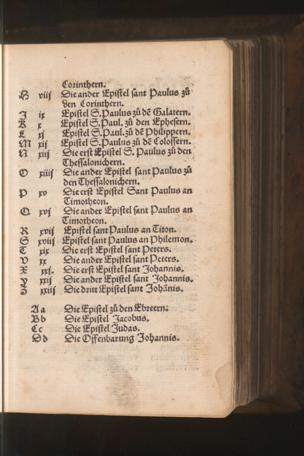 Corinthern.
H viij Die ander Epistel sant Paulus zů
den Corinthern.
J ix Epistel S. Paulus zů dẽ Galatern.
K x Epistel S. Paul. zů den Ephesern.
L xj Epistel S. Paul. zů dẽ Philippern.
M xij Epistel S. Paulus zů dẽ Colossern.
N xiij Die erst Epistel S. Paulus zů den
Thessalonichern.
O xiiij Die ander Epistel sant Paulus zů
den Thessalonichern.
P xv Die erst Epistel Sant Paulus an
Timotheon.
Q xvj Die ander Epistel sant Paulus an
Timotheon.
R xvij Epistel sant Paulus an Titon.
S xviij Epistel sant Paulus an Philemon.
T xix Die erst Epistel sant Peters.
V xx Die ander Epistel sant Peters.
X xxj. Die erst Epistel sant Johannis.
Y xxij Die ander Epistel sant Johannis.
Z xxiij Die dritt Epistel sant Johãnis.
Aa Die Epistel zů den Ebreern.
Bb Die Epistel Jacobus.
Cc Die Epistel Judas.
Dd Die Offenbarung Johannis.